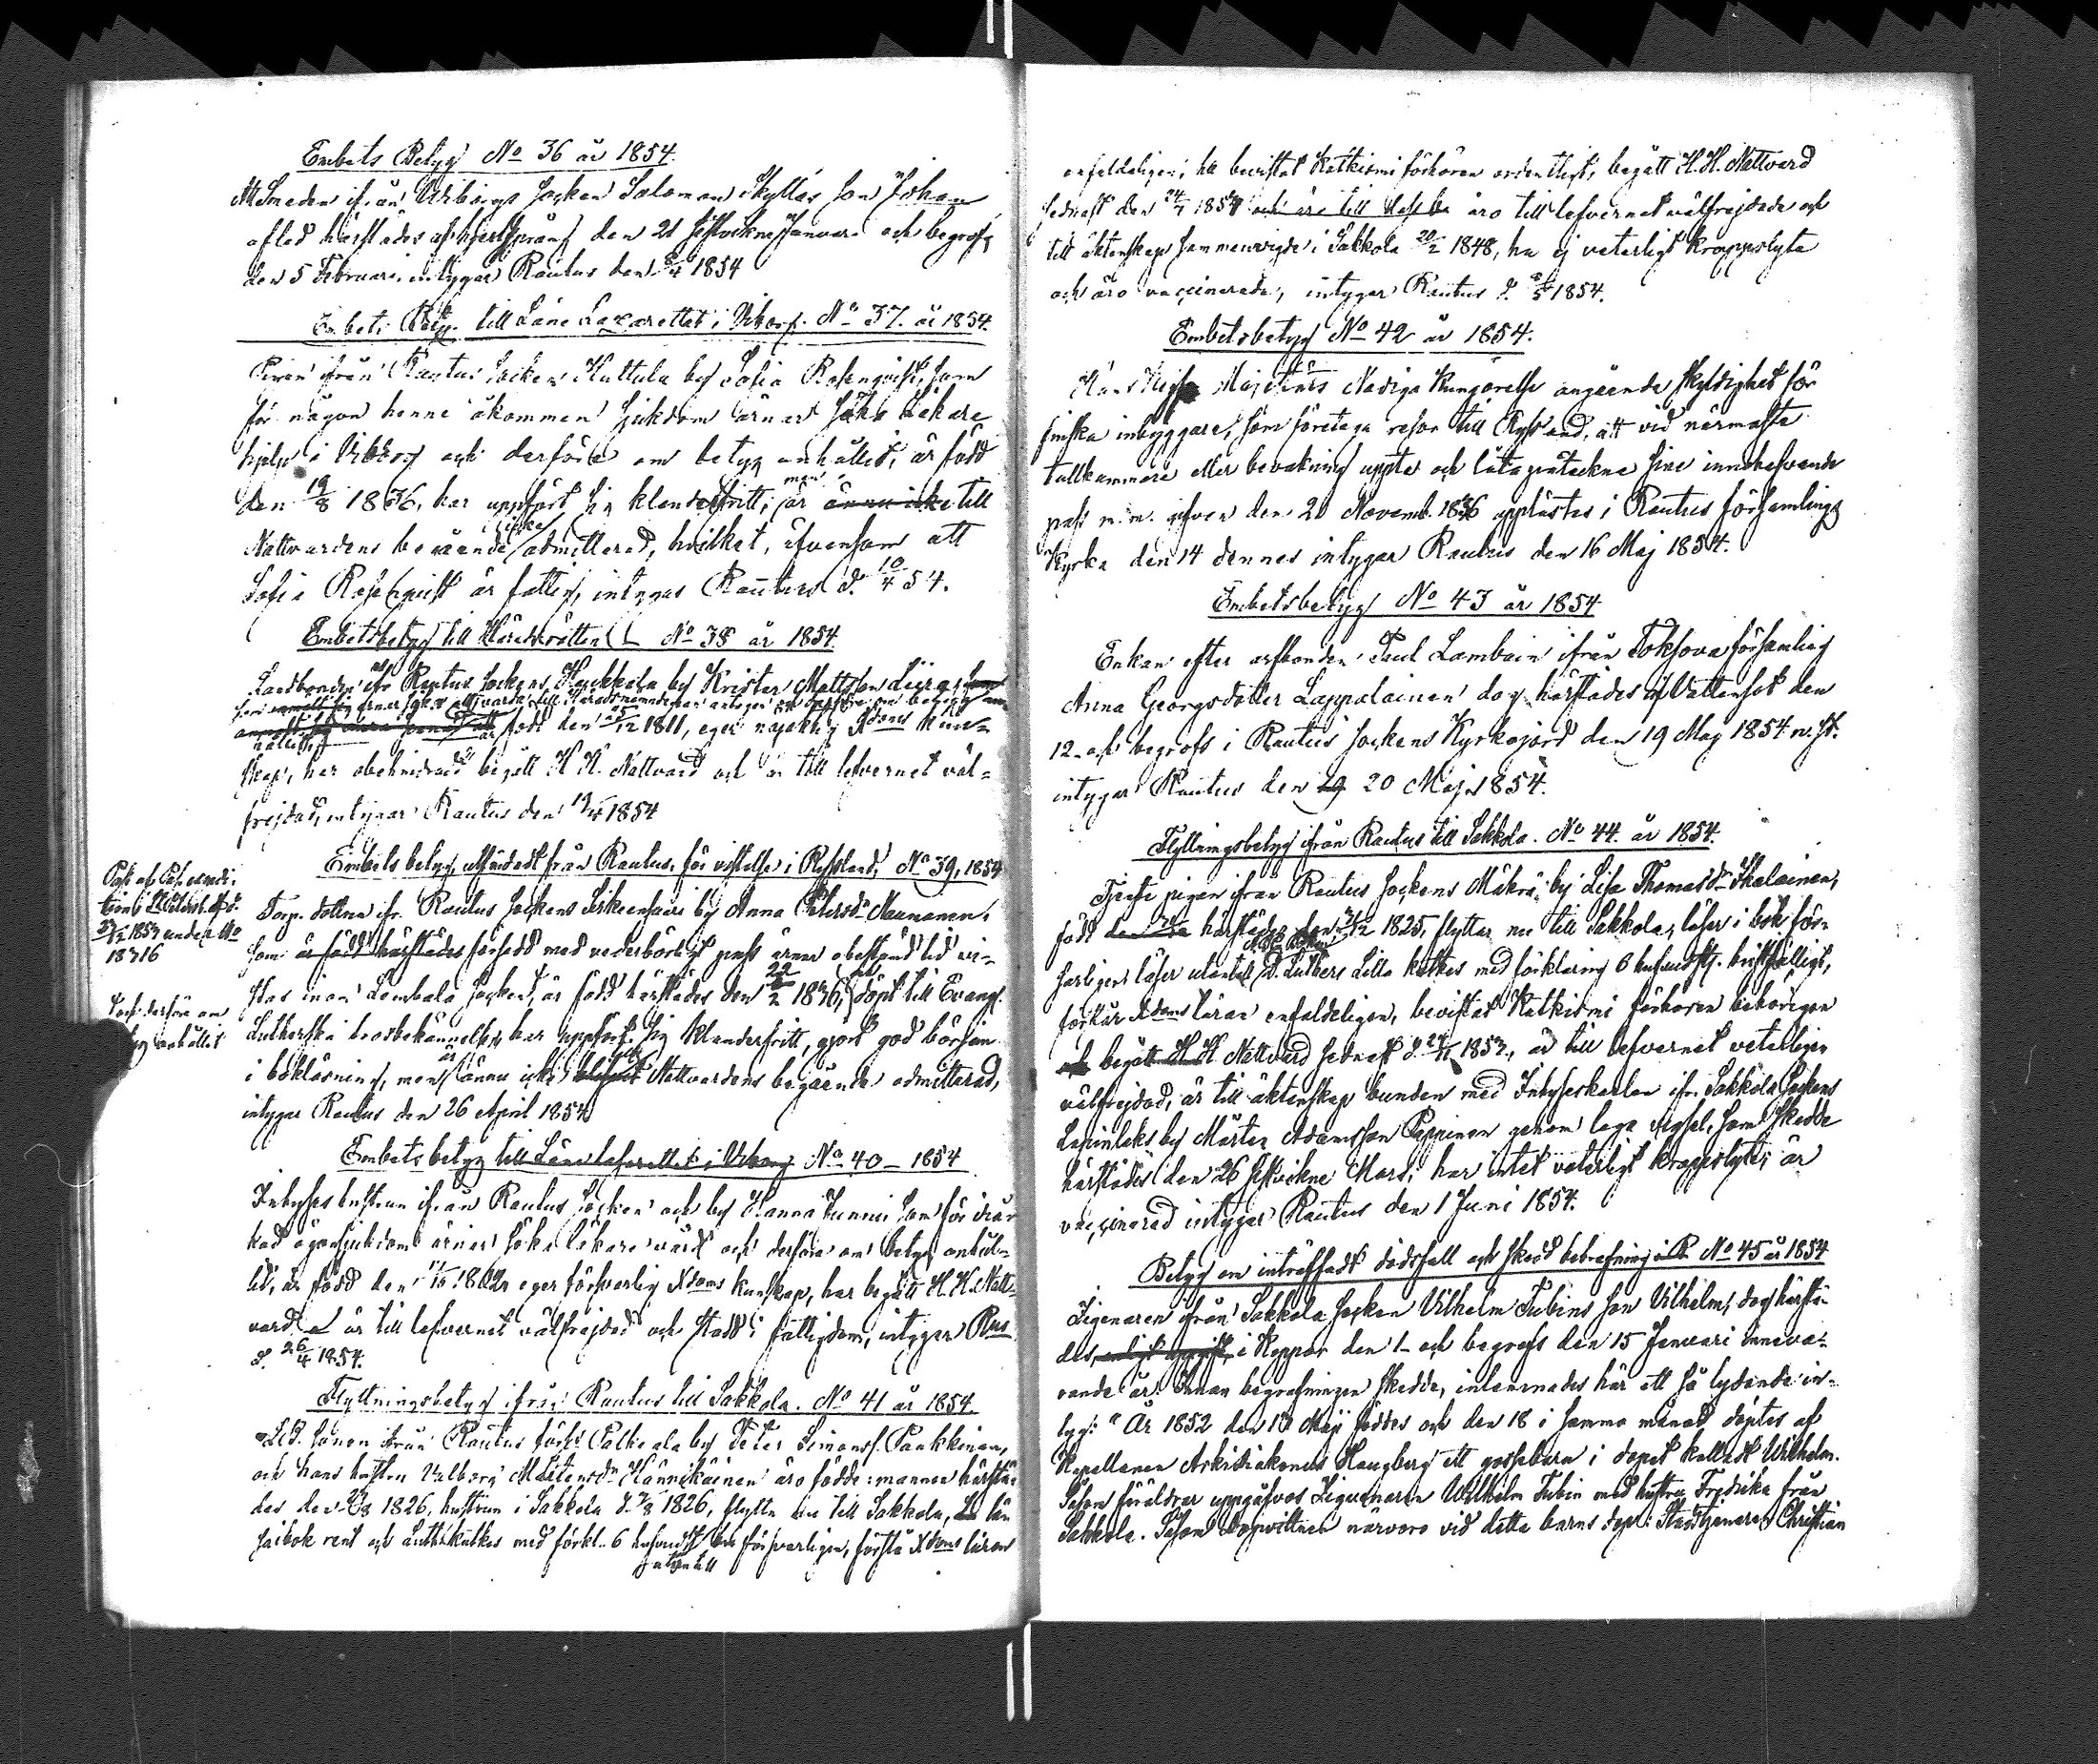 Embets Betyg No 36 år 1854.
Att Smeden ifrån Wiborgs Socken Salomon Skyttäs Son Johan
afled härstädes af hjertsprång den 21 sistvekne Januari och begrofs
den 5 Februari, intygar Rautus den 1854
Embets Betyg till Läne Lazarettet i Viborg. No 37. år 1854.
Pigan ifrån Rautus Socken Huttula by Sofia Rosenqvist, som
för någon henne åkommen sjukdom ärnar söka Läkare
hjelp i Viborg och derföre om betyg anhållit, är född
den 19/8 1836, har uppfört sig klanderfritt; men är ännu icke till
Nattvardens begående icke admitterad, hvilket, äfvensom att
Sofia Rosenqvist är fattig, intygas Rautus d. 10/4 54.
Embetsbetyg till Häradsrätten No 38 år 1854.
Landbonden ifr Rautus Sockens Haukkala by Krister Mattsson Liira
född den /12 1811, eger nöjaktig Xdoms kun-
skap, har obehindrad begått H H. Nattvard och är till lefvernet väl-
frejdad, intygar Rautus den 19/4 1854
Embets betyg, utfärdadt från Rautus, för vistelse i Ryssland, No 39, 1854
Pass af Pass expedi-
tion i
1853 under No
18316
Torp. dottren ifr. Rautus Sockens Sirkeensaari by Anna Petersdr Naunanen,
som är född härstädes försedd med vederbörligt pass ärnar obestämd tid vi-
stas inom Lembala Socken, är född härstädes den 22/2 1836, och döpt till Evang.
och derföre om
betyg anhållit
Lutherska trosbekännelsen, har uppfört sig klanderfritt, gjort god början
i bokläsning, men är ännu icke till Nattvardens begående admitterad,
intygar Rautus den 26 April 1854
Embetsbetyg till Läns lasarettet i Viborg No 40 - 1854
Inhyses hustrun ifrån Rautus Socken och by Hanna Junni som för inär
kad ögonsjukdom ärnar söka läkare vård och derföre om betyg anhål-
lit, är född den 11/10 1802, eger försvarlig Xdoms kunskap, har begått H. H. Natt-
vard är till lefvernet välfrejdad och stadd i fattigdom, intygar Rus
d. 26/4 1854.
Flyttningsbetyg ifrån Rautus till Sakkola. No 41 år 1854.
L.B. Sonen ifrån Rautus Sock: Palkeala by Peter Simonss. Paukkinen,
och hans hustru Valborg Mårtensdr Hännikäinen äro födde: mannen härstä-
des den 29/8 1826, hustrun i Sakkola d. 7/8 1826, flytta nu till Sakkola, lä-
sa i bok rent och Luth: katkes med förkl. 6 hufvudst utantill försvarligen, förstå Xdoms läran
enfaldeligen; ha bevistat Katkismi förhören ordentligt, begått H. H. Nattvard
sednast den 24/4 1854 och äro till lefve äro till lefvernet välfrejdade och
till äktenskap sammanvigde i Sakkola 20/2 1848, ha ej veterligt kroppslyte
och äro vaccinerade, intygar Rautus d. 1854.
Embetsbetyg No 42 år 1854.
Hans Kejs Majestäts Nådiga Kungörelse angående skyldighet för
finska inbyggare, som företaga resor till Ryssland, att vid närmaste
tullkammare eller bevakning uppte och låta påteckna sine innehafvande
pass m.m. gifven den 20 Novemb. 1836 upplästes i Rautus församlings
kyrka den 14 dennes intygar Rautus den 16 Maj 1854.
Embetsbetyg No 43 år 1854
Enkan efter arfbonden Paul Lambain ifrån Toksova församling
Anna Georgsdotter Lappalainen dog härstädes af Vattensot den
12 och begrofs i Rautus Sockens Kyrkojord den 19 Maj 1854 n. st.
intygar Rautus den 19 20 Maj 1854.
Flyttningsbetyg ifrån Rautus till Sakkola. No 44. år 1854.
Tjenste pigan ifrån Rautus Sockens Mäkrä by Lisa Thomasdr Ihalainen,
född härstädes den /12 1825, flyttar nu till Sakkola, läser i bok för-
svarligen läser utantill D. Luthers Lilla katkes med förklaring 6 hufvudst. bristfälligt,
förstår Xdoms läran enfaldeligen, bevistat Katkismi förhören behörigen
och begått H H Nattvard sednast d. 1853, är till lefvernet veterligen
välfrejdad, är till äktenskap bunden med Inhyseskarlen ifr. Sakkola Sockens
Lapinlaks by Mårten Adamsson Peppinen genom laga vigsel, som skedde
härstädes den 26 sistvekne Mars, har intet veterligt kroppslyte, är
vaccinerad intygar Rautus den 1 Juni 1854.
Betyg om inträffadt dödsfall och skedd bebrafning i R No 45 år 1854
Zigenaren ifrån Sakkola Socken Vilhelm Tubins Son Vilhelm, dog härstä-
des, enligt uppgift, i Koppor den 1 och begrofs den 15 Januari inneva-
rande år. Innan begrafningen skedde, inlemnades här ett så lydande in-
tyg: "År 1852 den 10 Maji föddes och den 18 i samma månad döptes af
Kapellanen Arkidiakonus Haugberg ett gossebarn i dopet kallad Wilhelm.
Såsom föräldrar uppgåfvos Ziguenaren Wilhelm Tubin med hustru Fredrika från
Sakkola. Såsom Dopvittnen närvoro vid detta barns dop: Stadstjenaren Christian